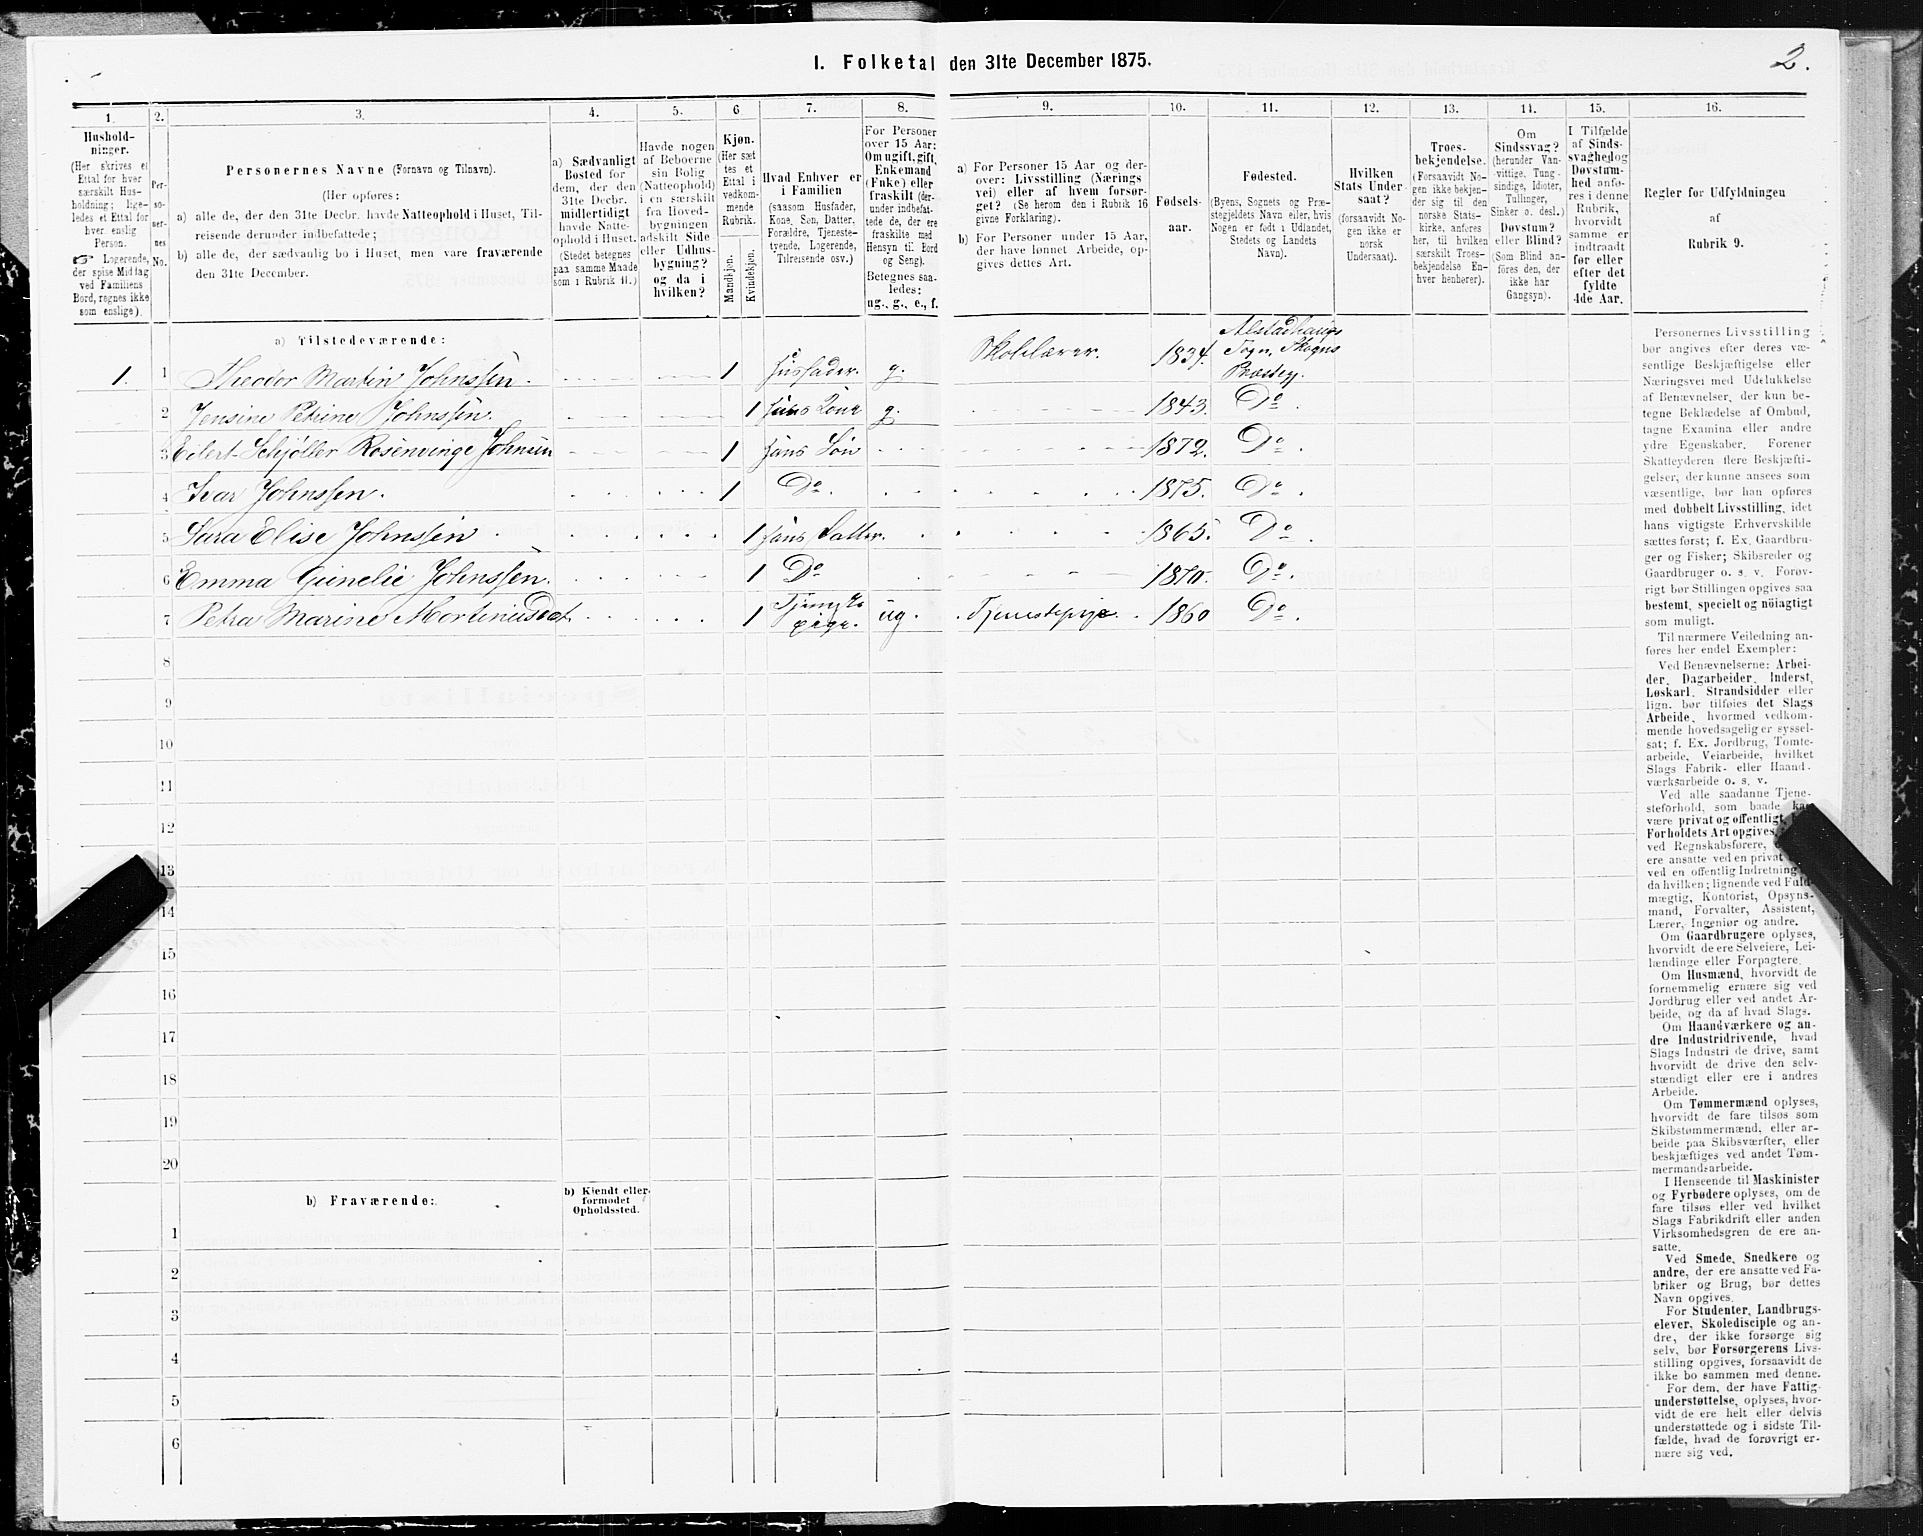 I. Folketal den 31te December 1875.
2.
1.
Hushold-
ninger.
(Her skrives et
Ettal for hver
særskilt Hus-
holdning; lige-
ledes et Ettal for
hver enslig
Person.
☞ Logerende,
der spise Middag
ved Familiens
Bord, regnes ikke
som enslige).
2.
Per-
so-
ner-
nes
No.
3.
Personernes Navne (Fornavn og Tilnavn).
(Her opføres:
a) alle de, der den 31te Decbr. havde Natteophold i Huset, Til-
reisende derunder indbefattede;
b) alle de, der sædvanlig bo i Huset, men vare fraværende
den 31te December.
4.
a) Sædvanligt
Bosted for
dem, der den
31te Decbr.
midlertidigt
havde Natte-
ophold i Huset.
(Stedet betegnes
paa samme Maade
som i Rubrik 11.)
5.
Havde nogen
af Beboerne
sin Bolig
(Natteophold)
i en særskilt
fra Hoved-
bygningen
adskilt Side
eller Udhus-
bygning?
og da i
hvilken?
6
Kjøn.
(Her sæt
tes et
Ettal i
vedkom-
mende
Rubrik.
Mandkjøn.
Kvindekjøn.
7.
Hvad Enhver er
i Familien
(saasom Husfader,
Kone, Søn, Datter,
Forældre, Tjeneste-
tyende, Logerende,
Tilreisende osv.)
8.
For Personer
over 15 Aar:
Om ugift, gift,
Enkemand
(Enke) eller
fraskilt (der-
under indbefat-
tede de, der ere
fraskilte med
Hensyn til Bord
og Seng).
Betegnes saa-
ledes:
ug., g., e., f.
9.
a) For Personer 15 Aar og der-
over: Livsstilling (Nærings
vei) eller af hvem forsør-
get? (Se herom den i Rubrik 16
givne Forklaring).
b) For Personer under 15 Aar,
der have lønnet Arbeide, op-
gives dettes Art.
10.
Fødsels-
aar.
11.
Fødested.
(Byens, Sognets og Præ-
stegjeldets Navn eller, hvis
Nogen er født i Udlandet,
Stedets og Landets
Navn).
12.
Hvilken
Stats Under-
saat?
(forsaavidt No-
gen ikke er
norsk
Undersaat).
13.
Troes-
bekjendelse.
(Forsaavidt No-
gen ikke bekjen-
der sig til den
norske Stats-
kirke, anføres
her, til hvilken
særskilt Troes-
bekjendelse En-
hver henhører).
14.
Om
Sindssvag?
(herunder Van-
vittige, Tung-
sindige, Idioter,
Tullinger,
Sinker o. desl.)
Døvstum?
eller Blind?
(Som Blind an-
føres den, der
ikke har
Gangsyn).
15.
I Tilfælde
af Sinds-
svaghed og
Døvstum-
hed anfø-
res i denne
Rubrik,
hvorvidt
samme er
indtraadt
før eller
efter det
fyldte
4de Aar.
16.
Regler for Udfyldningen
af
Rubrik 9.
a) Tilstedeværende:
1. 1 Theodor Martin Johnssen. 1 Husfader. g. Skolelærer. 1834. Alstadhaugs Sogn, Skogns Præsteg.
2 Jensine Petrine Johnssen. 1 Hans Kone g. 1843. Do.
3 Eilert Schjøller Rosenvinge Johnsen 1 Hans Søn 1872. Do.
4 Ivar Johnssen. 1 Do. 1875. Do.
5 Sara Elise Johnssen 1 Hans Datter. 1865. Do.
6 Emma Gunelie Johnssen. 1 Do 1870. Do.
7 Petra Marine Mortinusdat. 1 Tjeneste pige. ug. Tjenestepige. 1860 Do.
8
9
10
11
12
13
14
15
16
17
18
19
20
b) Fraværende:
b) Kjendt eller
formodet
Opholdssted.
1
2
3
4
5
6
Personernes Livsstilling
bør angives efter deres væ-
sentlige Beskjæftigelse eller
Næringsvei med Udelukkelse
af Benævnelser, der kun be-
tegne Beklædelse af Ombud,
tagne Examina eller andre
ydre Egenskaber. Forener
Skatteyderen flere Beskjæfti-
gelser, der kunne ansees som
væsentlige, bør han opføres
med dobbelt Livsstilling, idet
hans vigtigste Erhvervskilde
sættes først; f. Ex. Gaardbru-
ger og Fisker; Skibsreder og
Gaardbruger o. s. v. Forøv-
rigt bør Stillingen opgives saa
bestemt, specielt og nöiagtigt
som muligt.
Til nærmere Veiledning an-
føres her endel Exempler:
Ved Benævnelserne: Arbei-
der, Dagarbeider, Inderst,
Løskarl, Strandsidder eller
lign. bør tilføies det Slags
Arbeide, hvormed vedkom-
mende hovedsagelig er syssel-
sat; f. Ex. Jordbrug, Tomte-
arbeide, Veiarbeide, hvilket
Slags Fabrik- eller Haand-
værksarbeide o. s. v.
Ved alle saadanne Tjene-
steforhold, som baade kan
være privat og offentligt,
Forholdets Art opgives,
ved Regnskabsførere,
ere ansatte ved en privat
ved en offentlig Indretning
da hvilken; lignende ved Fuld-
mægtig, Kontorist, Opsyns-
mand, Forvalter, Assistent,
Lærer, Ingeniør og andre.
Om Gaardbrugere oplyses,
hvorvidt de ere Selveiere, Lei-
lændinge eller Forpagtere.
Om Husmænd, hvorvidt de
fornemmelig ernære sig ved
Jordbrug eller ved andet Ar-
beide, og da af hvad Slags.
Om Haandværkere og an-
dre Industridrivende, hvad
Slags Industri de drive, samt
hvorvidt de drive den selv-
stændigt eller ere i andres
Arbeide.
Om Tømmermænd oplyses,
hvorvidt de fare tilsøs som
Skibstømmermænd, eller ar-
beide paa Skibsværfter, eller
beskjæftiges ved andet Tøm-
mermandsarbeide.
I Henseende til Maskinister
og Fyrbødere oplyses, om de
fare tilsøs eller ved hvilket
Slags Fabrikdrift eller anden
Virksomhedsgren de ere an-
satte.
Ved Smede, Snedkere og
andre, der ere ansatte ved Fa-
briker og Brug, bør dettes
Navn opgives.
For Studenter, Landbrugs-
elever, Skoledisciple og an-
dre, der ikke forsørge sig
selv, bør Forsørgerens Livs-
stilling opgives, forsaavidt de
ikke bo sammen med denne.
For dem, der have Fattig-
understøttelse, oplyses, hvor-
vidt de ere helt eller delvis
understøttede og i sidste Til-
fælde, hvad de forøvrigt er-
nære sig ved.